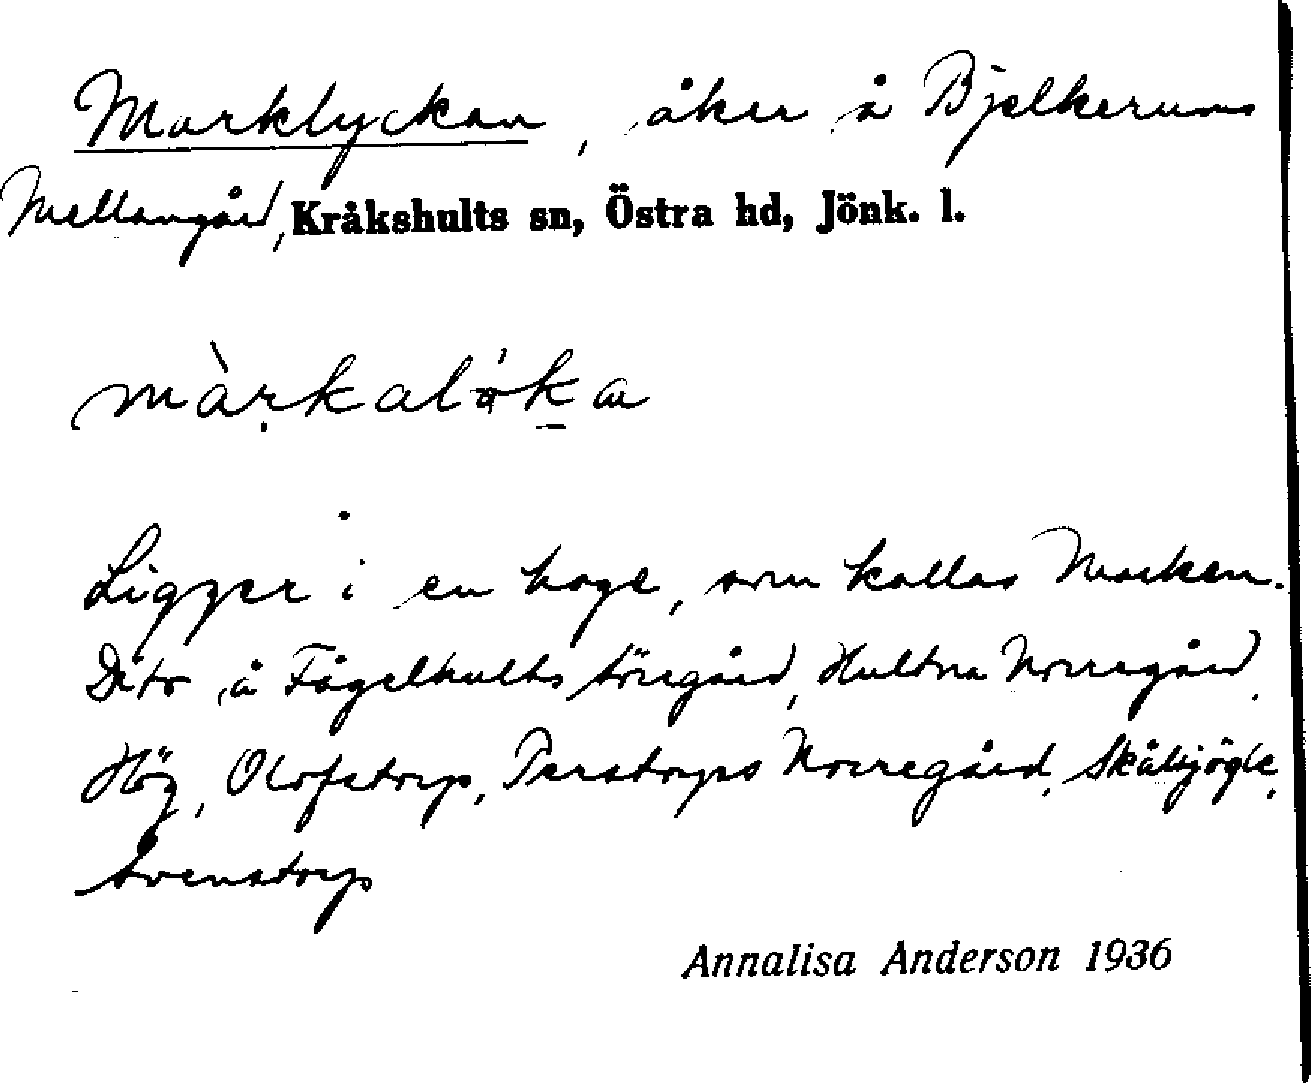 Marklyckan, åker å Bjelkerums
Mellangård, Kråkshults sn, Östra hd, Jönk. l.
màrkaló̵ka
Ligger i en hage, som kallas Marken.
Dito å Fågelhults Söregård, Hultna Norregård,
Hög, Olofstorp, Perstorps Norregård,
Svenstorp
Annalisa Anderson 1936